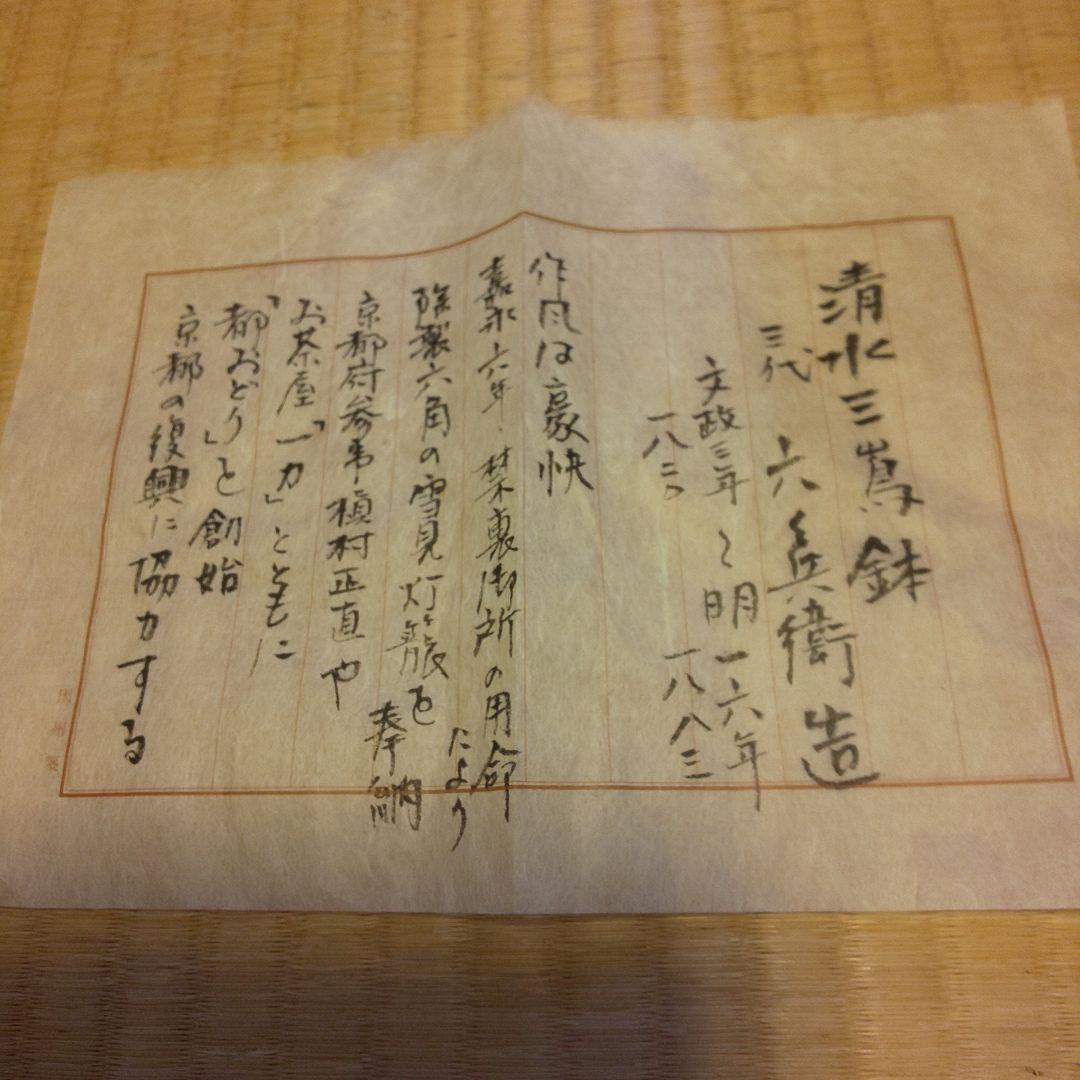 清水三嶌鉢
三代 六兵衛造
文政三年〜明一六年
一八二〇 一八八三
作風は豪快
嘉永六年、禁裏御所の用命
により
陶製六角の雪見灯籠を
奉納
京都府参事槇村正直や
お茶屋「一力」とともに
「都おどり」と創始
京都の復興に協力する